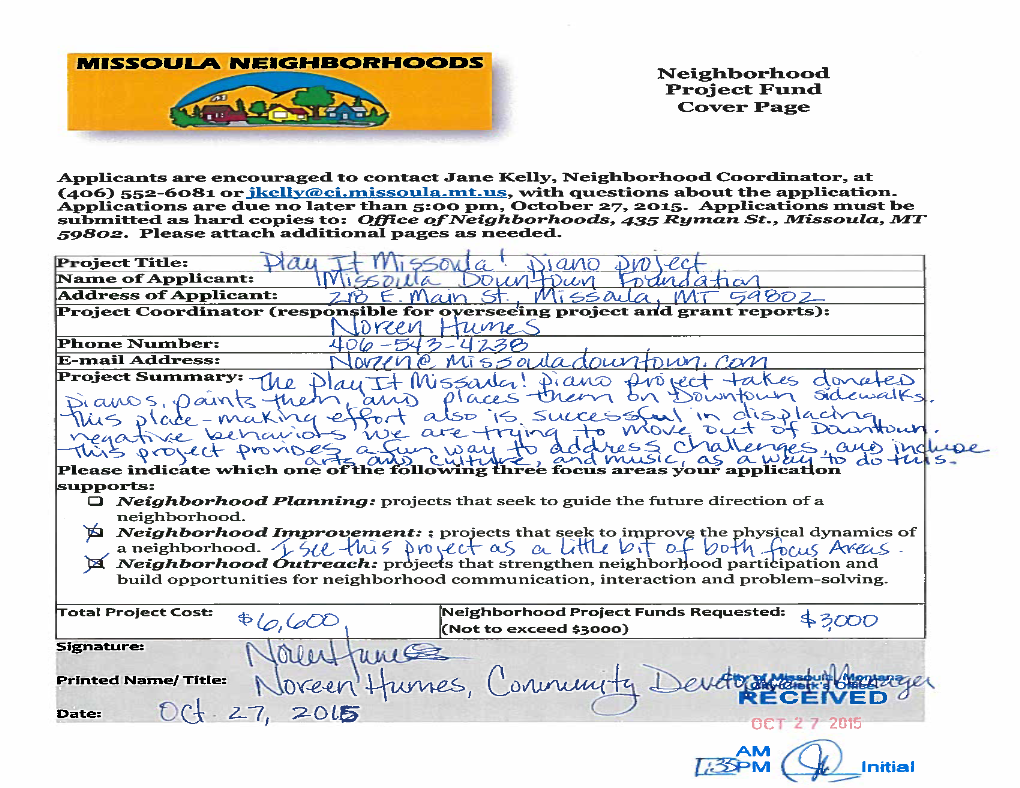 MISSOULA NEIGHBORHOODS
Neighborhood
Project Fund
Cover Page
Applicants are encouraged to contact Jane Kelly, Neighborhood Coordinator, at
(406) 552-6081 or jkelly@ci.missoula.mt.us, with questions about the application.
Applications are due no later than 5:00 pm, October 27, 2015. Applications must be
submitted as hard copies to: Office of Neighborhoods, 435 Ryman St., Missoula, MT
59802. Please attach additional pages as needed.
Project Title: Play It Missoula! Piano project
Name of Applicant: Missoula Downtown Foundation
Address of Applicant: 218 E. Main St., Missoula, MT 59802
Project Coordinator (responsible for overseeing project and grant reports):
Noreen Humes
Phone Number: 406-543-4238
E-mail Address: Noreen@missouladowntown.com
Project Summary: The Play It Missoula! piano project takes donated
pianos, paints them, and places them on Downtown sidewalks.
This place-making effort also is successful in displacing
negative behaviors we are trying to move out of Downtown.
This project provides a fun way to address challenges, and include
arts and culture, and music, as a way to do this.
Please indicate which one of the following three focus areas your application
supports:
Neighborhood Planning: projects that seek to guide the future direction of a
neighborhood.
Neighborhood Improvement: ; projects that seek to improve the physical dynamics of
a neighborhood. I see this project as a little bit of both focus Areas.
Neighborhood Outreach: projects that strengthen neighborhood participation and
build opportunities for neighborhood communication, interaction and problem-solving.
Total Project Cost: $6,600
Neighborhood Project Funds Requested: $3000
(Not to exceed $3000)
Signature: Noreen Humes
Printed Name/ Title: Noreen Humes, Community Development Manager
City of Missoula, Montana
City Clerk's Office
RECEIVED
Date: Oct. 27, 2015
OCT 27 2015
AM
1:35 PM Initial